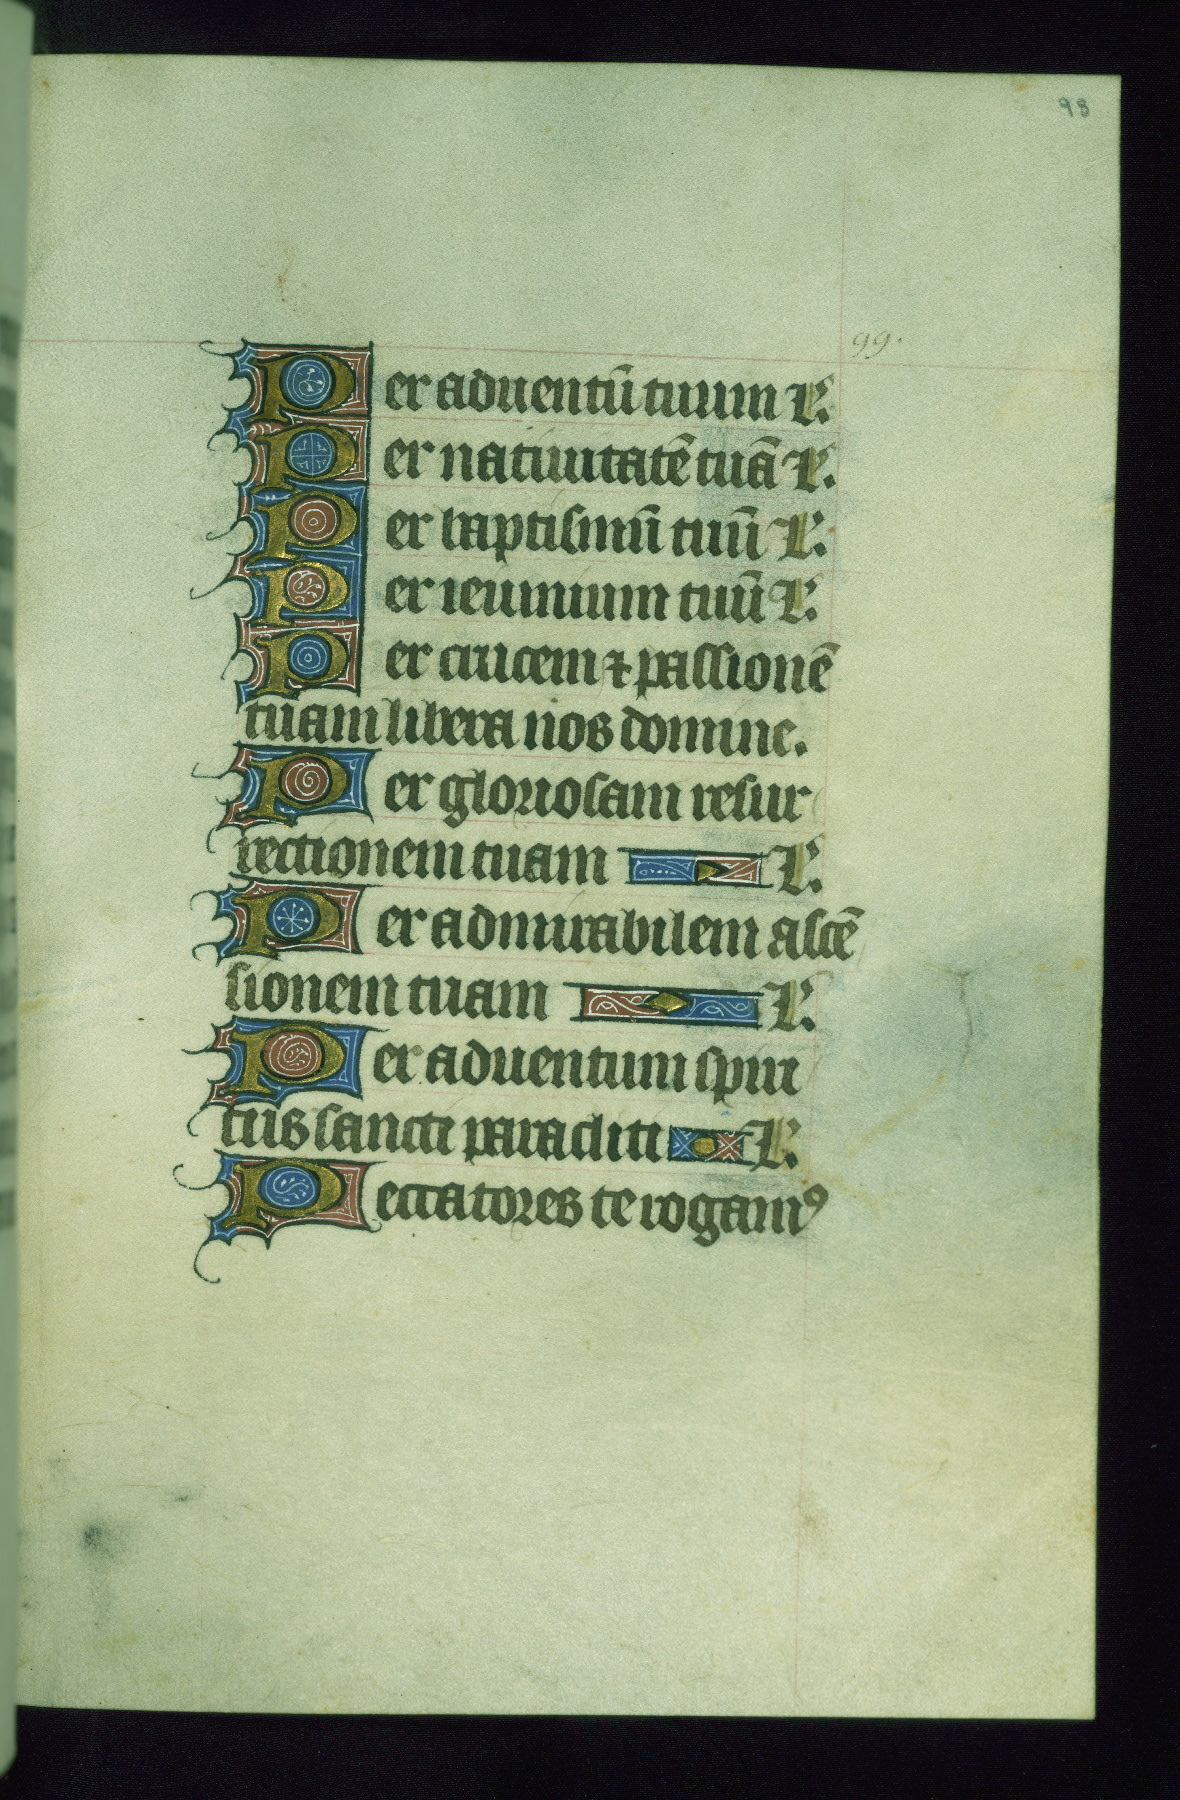 98
99.
Per aduentū tuum L.
Per natiuitatē tuā L.
Per baptismū tuū L.
Per ieiunium tuū L.
Per crucem ⁊ passionē
tuam libera nos domine.
Per gloriosam resur
rectionem tuam L.
Per admirabilem ascē
sionem tuam L.
Per aduentum spiri
tus sancti paracliti L.
Peccatores te rogamꝰ